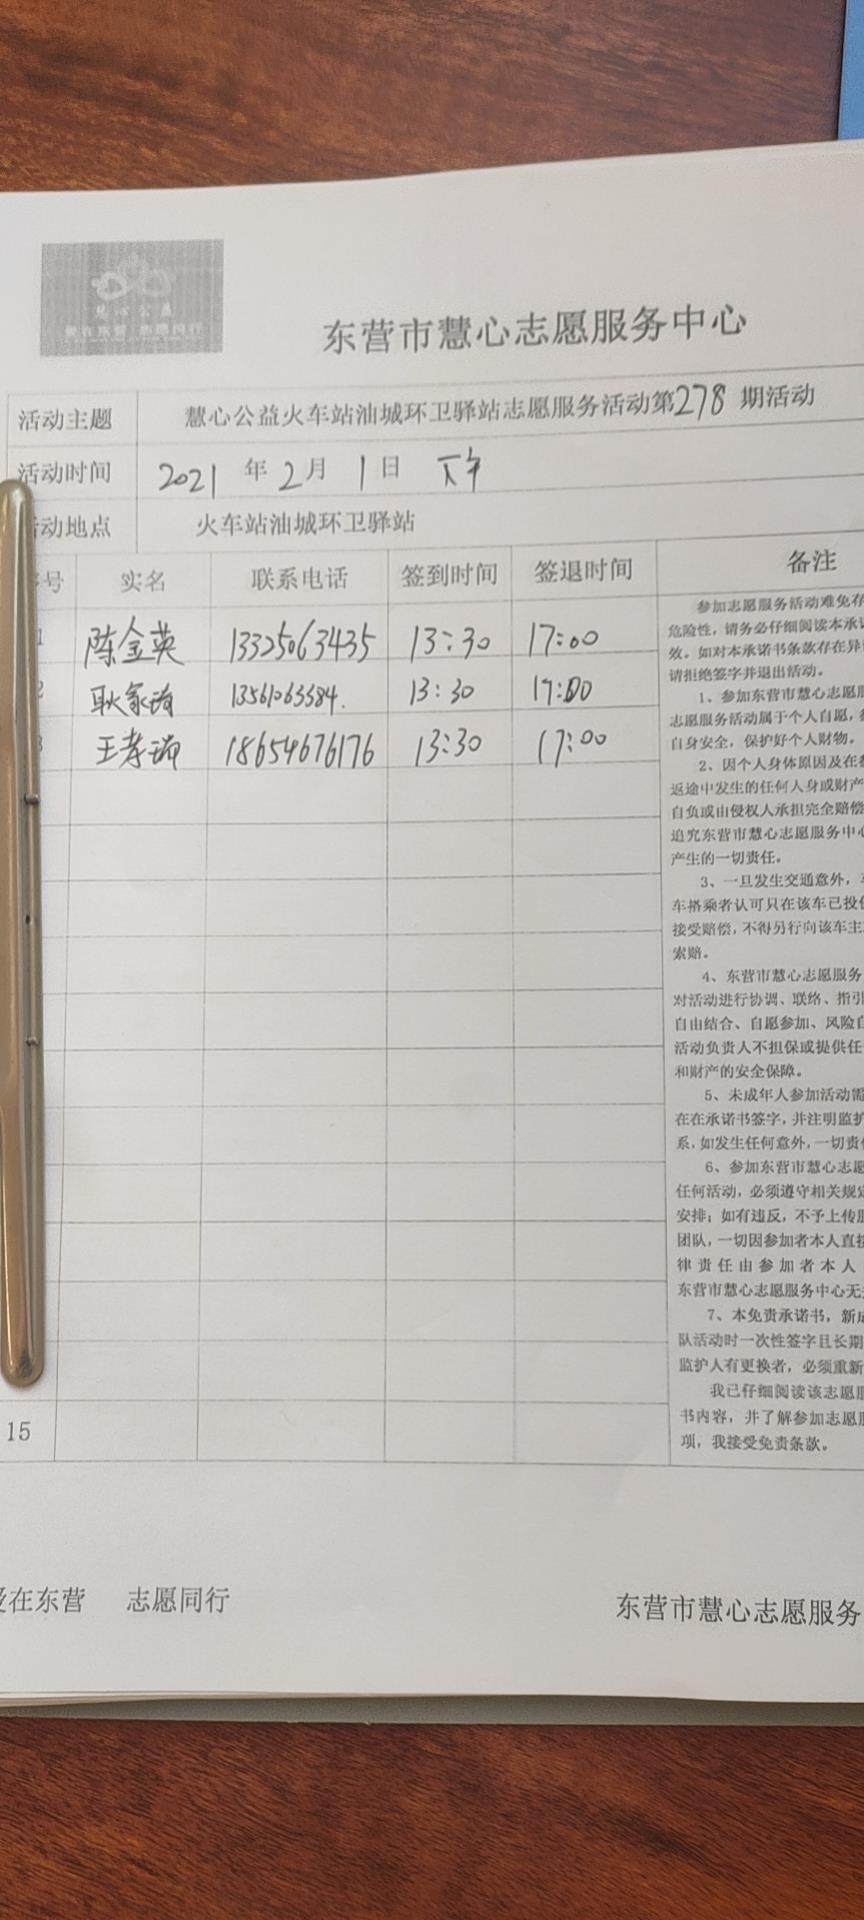 慧心公益
爱在东营 志愿同行
东营市慧心志愿服务中心
活动主题 慧心公益火车站油城环卫驿站志愿服务活动第278期活动
活动时间 2021年2月1日 下午
动地点 火车站油城环卫驿站
号 实名 联系电话 签到时间 签退时间 备注
1 陈金英 13325063435 13:30 17:00
2 耿家 13561063584. 13:30 17:00
3 王孝瑞 18654676176 13:30 17:00
15
参加志愿服务活动难免存
危险性，请务必仔细阅读本承诺
效。如对本承诺书条款存在异
请拒绝签字并退出活动。
1、参加东营市慧心志愿服
志愿服务活动属于个人自愿，
自身安全，保护好个人财物。
2、因个人身体原因及在参
返途中发生的任何人身或财产
自负或由侵权人承担完全赔偿
追究东营市慧心志愿服务中心
产生的一切责任。
3、一旦发生交通意外，
车搭乘者认可只在该车已投保
接受赔偿，不得另行向该车主
索赔。
4、东营市慧心志愿服务
对活动进行协调、联络、指引
自由结合、自愿参加、风险自
活动负责人不担保或提供任
和财产的安全保障。
5、未成年人参加活动需
在在承诺书签字，并注明监护
系，如发生任何意外，一切责任
6、参加东营市慧心志愿
任何活动，必须遵守相关规定
安排；如有违反，不予上传服
团队，一切因参加者本人直接
律责任由参加者本人
东营市慧心志愿服务中心无
7、本免责承诺书，新成
队活动时一次性签字且长期
监护人有更换者，必须重新
我已仔细阅读该志愿服
书内容，并了解参加志愿服
项，我接受免责条款。
爱在东营 志愿同行
东营市慧心志愿服务